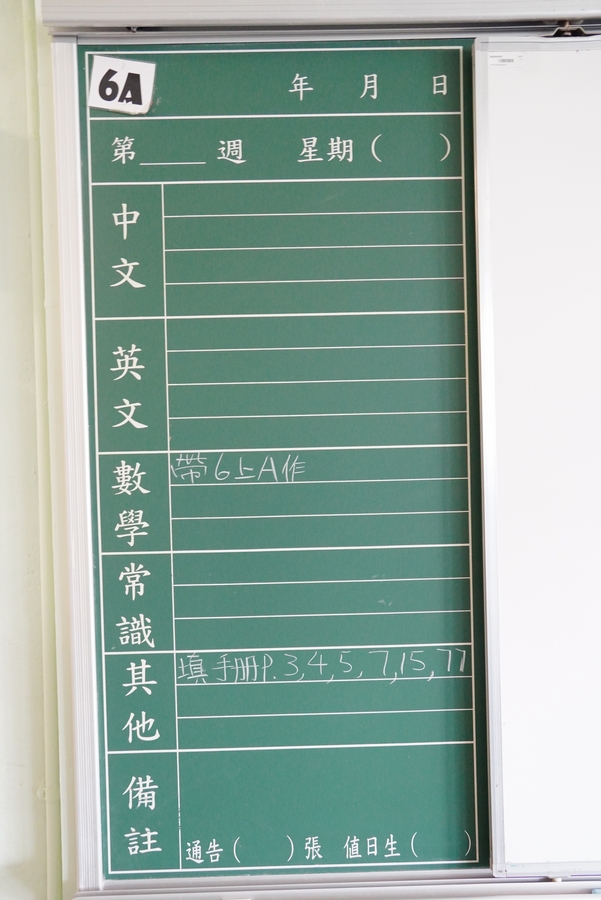 6A
年 月 日
第____週 星期( )
中文
英文
數學
帶6上A作
常識
其他
填手册P.3,4,5,7,15,77
備註
通告( )張 值日生( )